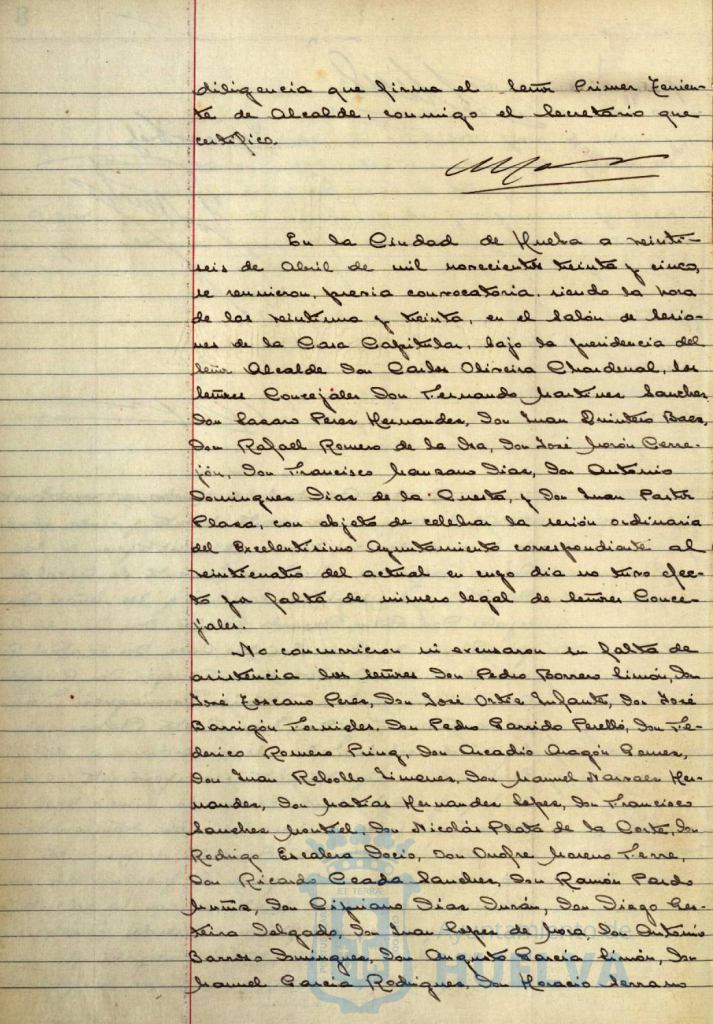 diligencia que firma el Señor Primer Tenien-
te de Alcalde, conmigo el Secretario que
certifico.
En la Ciudad de Huelva a veinti-
seis de Abril de mil novecientos treinta y cinco,
se reunieron, previa convocatoria, siendo la hora
de las veintiuna y treinta, en el Salón de Sesio-
nes de la Casa Capitular, bajo la presidencia del
Señor Alcalde Don Carlos Oliveira Chardenal, los
Señores Concejales Don Fernando Martinez Sanchez,
Don Lazaro Perez Hernandez, Don Juan Quintero Baez,
Don Rafael Romero de la Isa, Don José Morón Cerre-
jón, Don Francisco Manzano Diaz, Don Antonio
Dominguez Diaz de la Cuesta, y Don Juan Pastor
Plaza, con objeto de celebrar la sesión ordinaria
del Excelentísimo Ayuntamiento correspondiente al
veinticuatro del actual en cuyo dia no tuvo efec-
to por falta de número legal de Señores Conce-
jales.
No concurrieron ni excusaron su falta de
asistencia los Señores Don Pedro Borrero Limón, Don
José Toscano Perez, Don José Ortiz Infante, Don José
Barrigón Fornieles, Don Pedro Garrido Perelló, Don Fe-
derico Romero Ping, Don Arcadio Aragón Gomez,
Don Juan Rebollo Jimenez, Don Manuel Narvaez Her-
nandez, Don Matías Hernandez Lopez, Don Francisco
Sanchez Montiel, Don Nicolás Plata de la Corte, Don
Rodrigo Escalera Socio, Don Onofre Moreno Ferre,
Don Ricardo Ceada Sanchez, Don Ramón Pardo
Muñiz, Don Cipriano Diaz Durán, Don Diego Ges-
teira Delgado, Don Juan Lopez de Mora, Don Antonio
Barroso Dominguez, Don Augusto Garcia Limón, Don
Manuel Garcia Rodriguez, Don Horacio Serrano
Ayuntamiento de
HUELVA